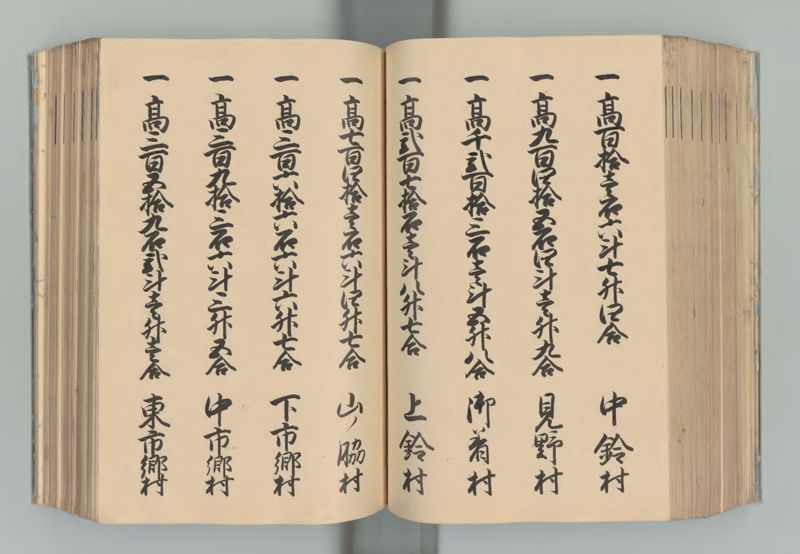 一高百拾壱石六斗七升四合 中鈴村
一高九百四拾五石四斗壱升九合 見野村
一高千弐百拾三石壱斗五升八合 御着村
一高弐百七拾石壱斗八升七合 上鈴村
一高七百四拾壱石六斗四升七合 山ノ脇村
一高三百六拾六石六斗六升七合 下市郷村
一高三百九拾三石六斗三升五合 中市郷村
一高三百五拾九石弐斗壱升壱合 東市郷村